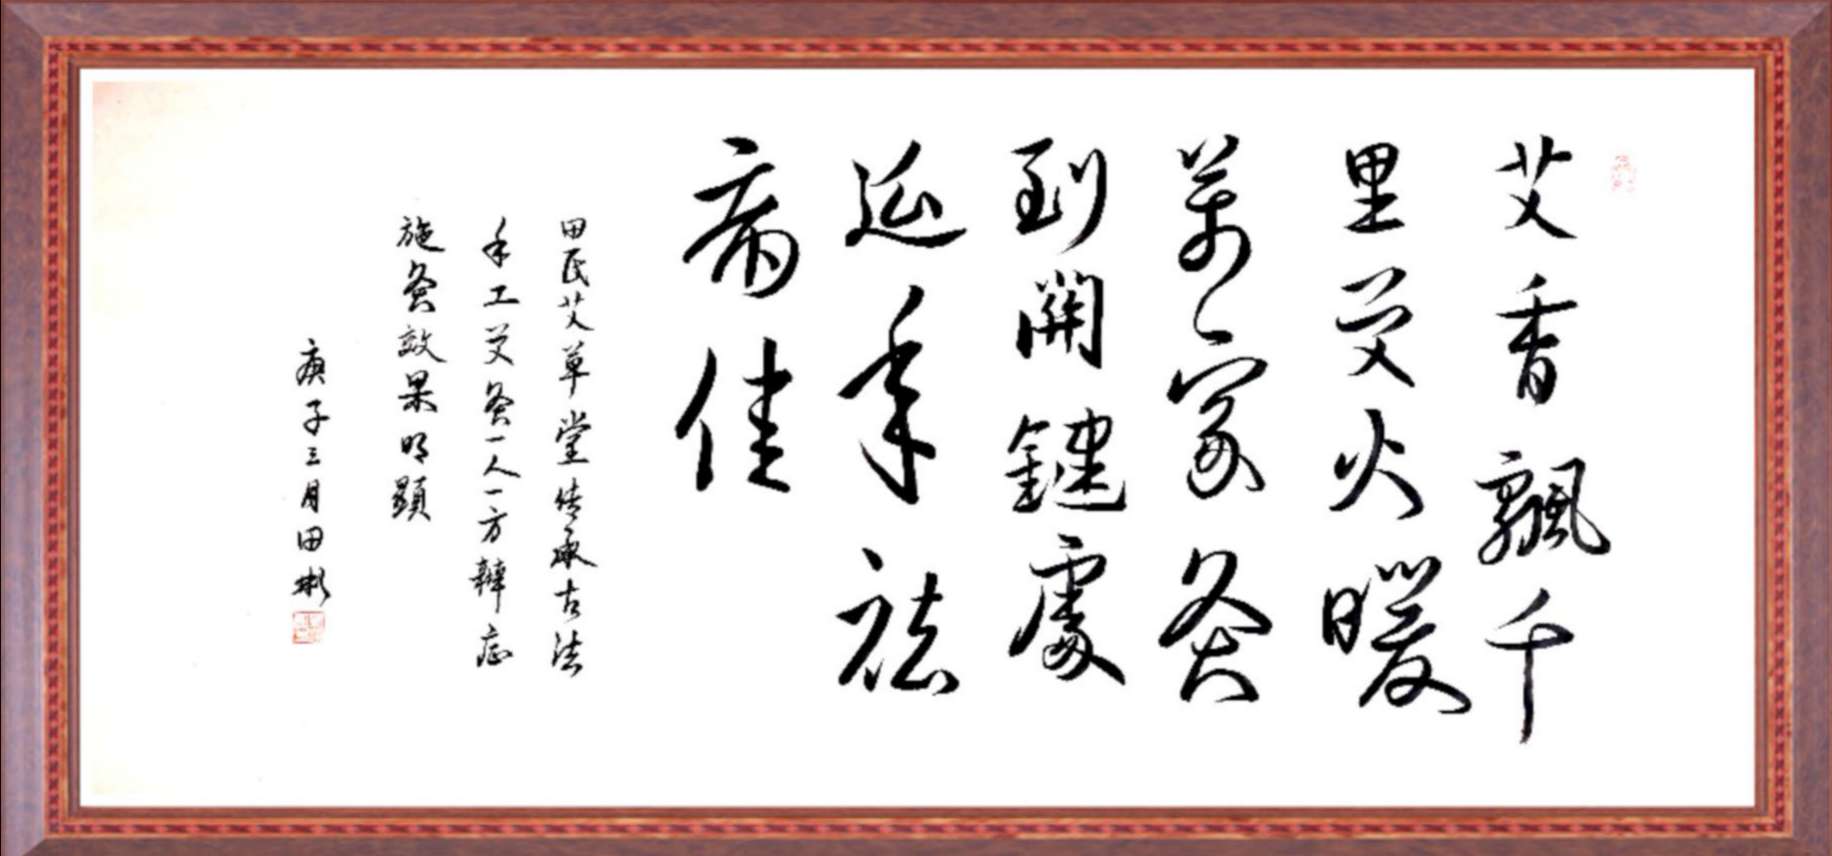 艾香飄千
里艾火暖
萬家灸
到關鍵處
延年祛
病佳
田氏艾草堂传承古法
手工艾灸一人一方辨症
施灸效果明顯
庚子三月田彬